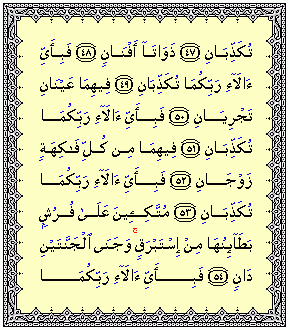 تُكَذِّبَانِ ٤٧ ذَوَاتَآ أَفْنَانٍ ٤٨ فَبِأَىِّ
ءَالَآءِ رَبِّكُمَا تُكَذِّبَانِ ٤٩ فِيهِمَا عَيْنَانِ
تَجْرِيَانِ ٥٠ فَبِأَىِّ ءَالَآءِ رَبِّكُمَا
تُكَذِّبَانِ ٥١ فِيهِمَا مِن كُلِّ فَٰكِهَةٍ
زَوْجَانِ ٥٢ فَبِأَىِّ ءَالَآءِ رَبِّكُمَا
تُكَذِّبَانِ ٥٣ مُتَّكِـِٔينَ عَلَىٰ فُرُشٍۭ
بَطَآئِنُهَا مِنْ إِسْتَبْرَقٍ ۚ وَجَنَى ٱلْجَنَّتَيْنِ
دَانٍ ٥٤ فَبِأَىِّ ءَالَآءِ رَبِّكُمَا